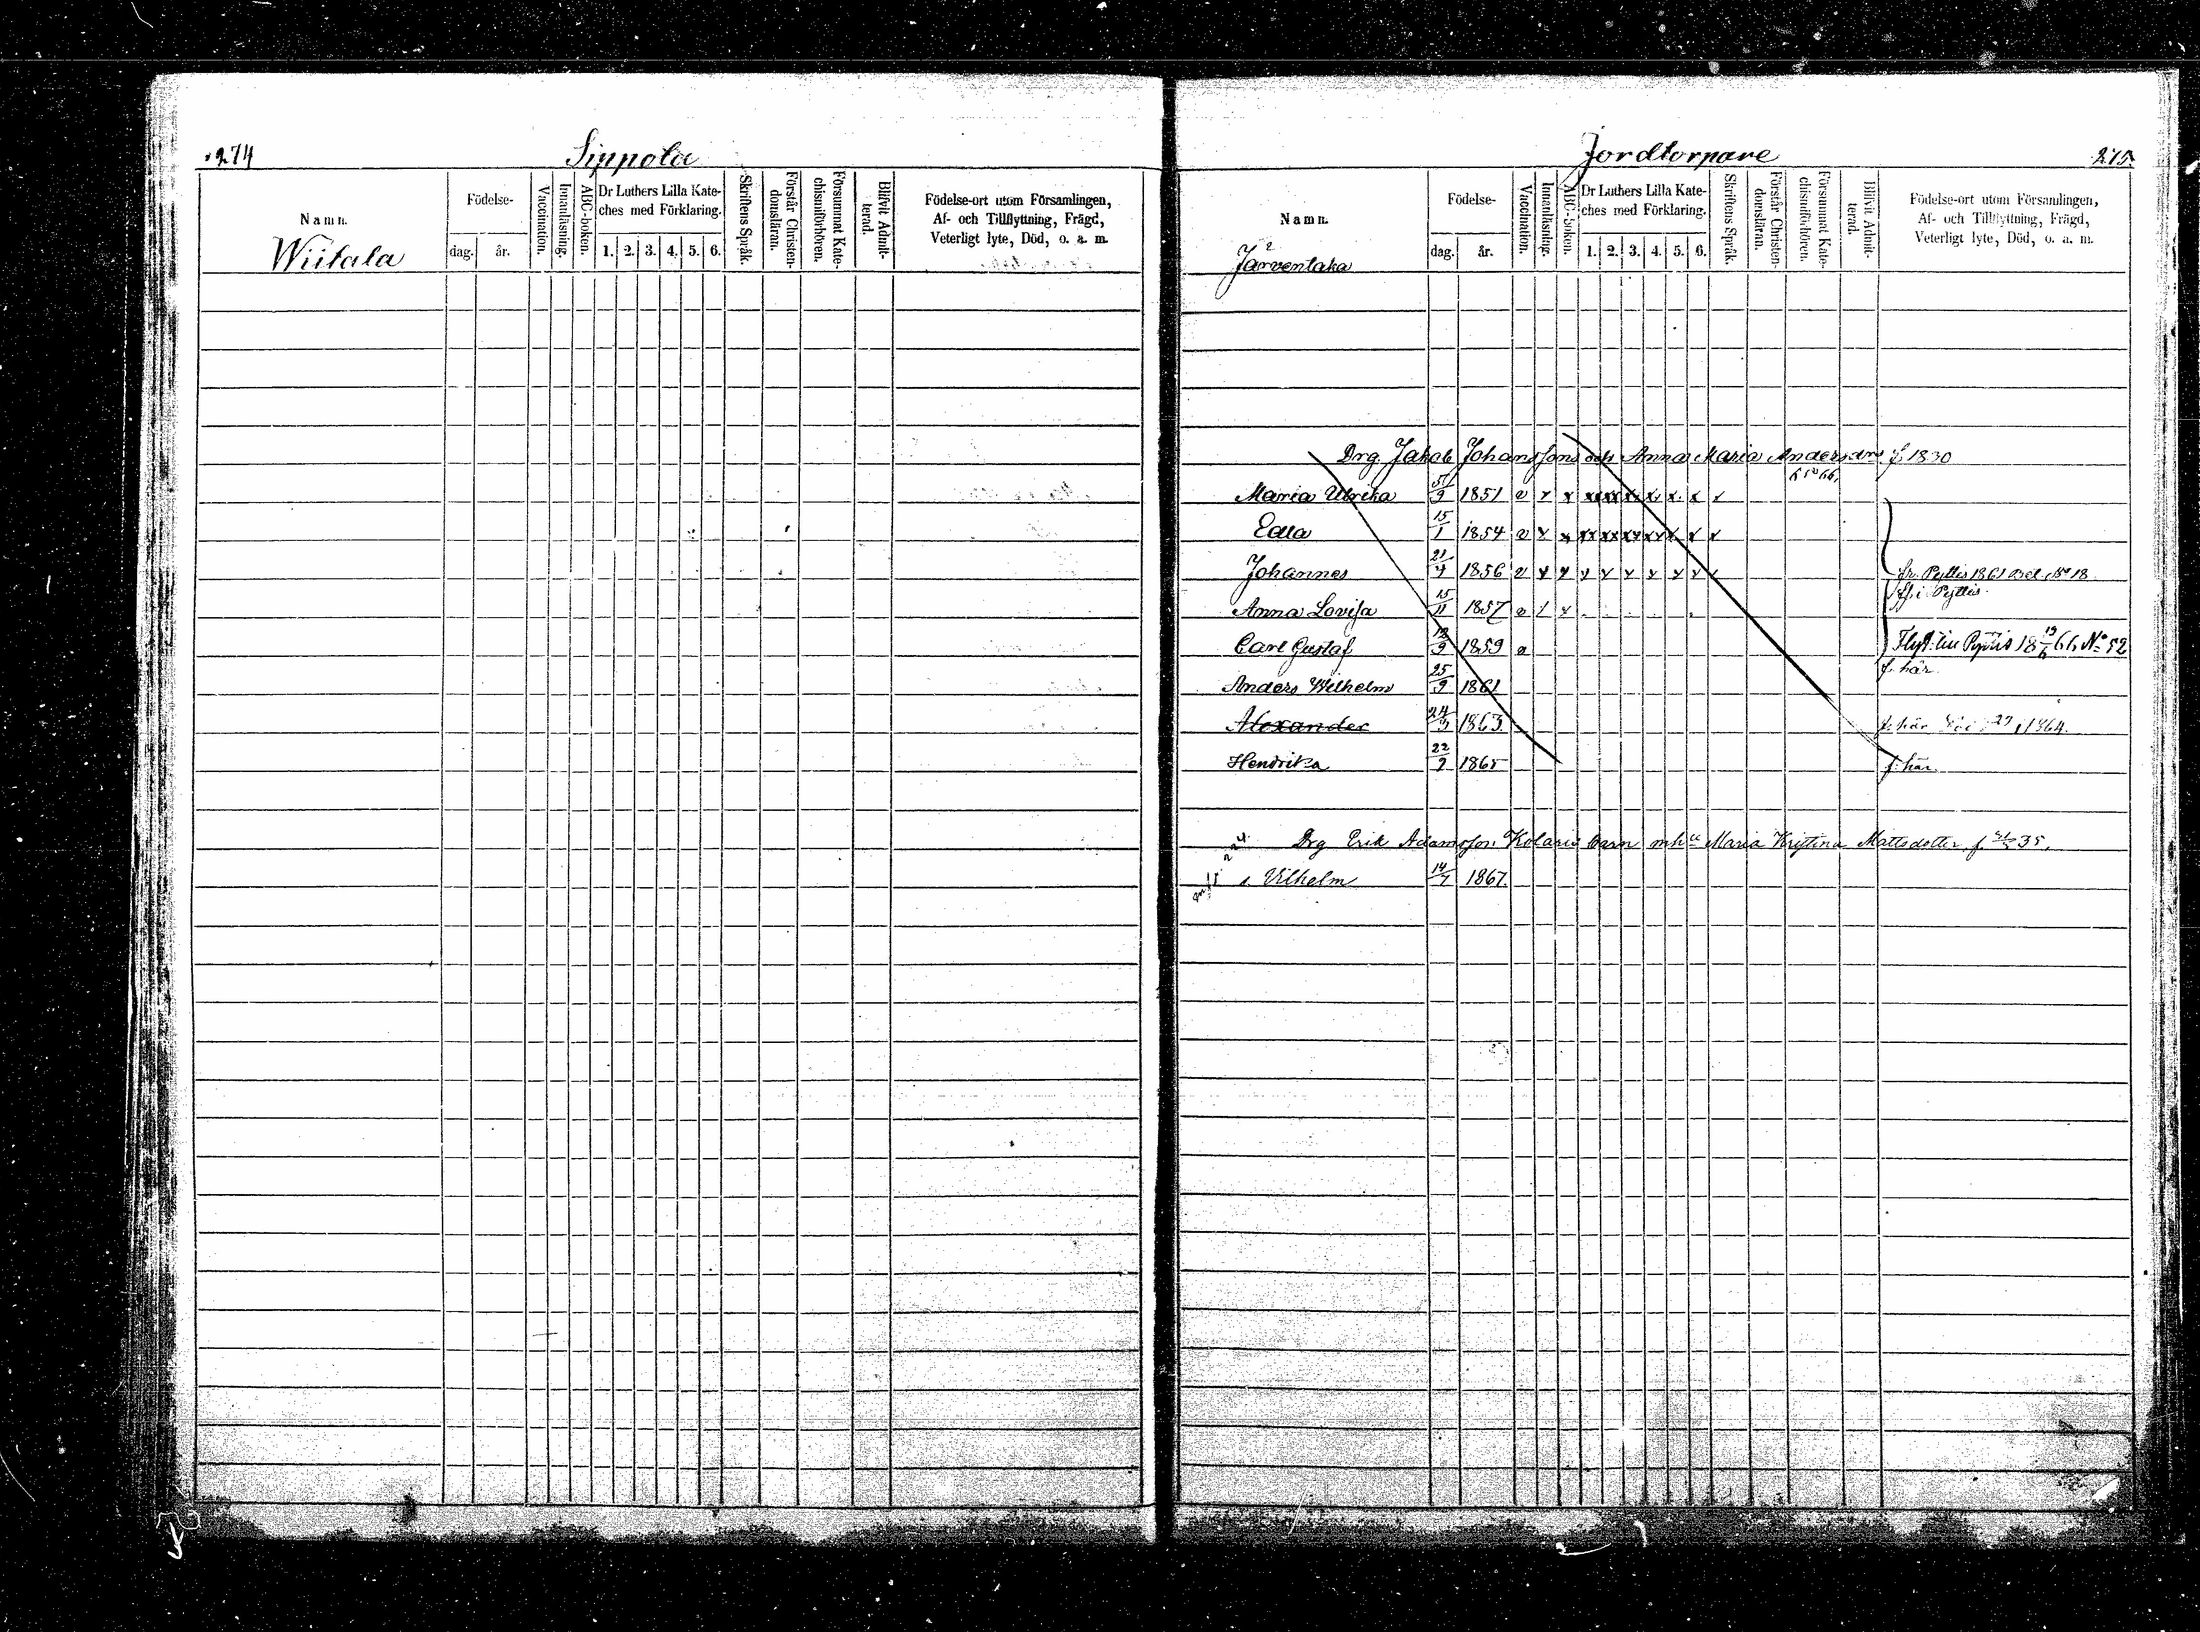 274
Sippola
Namn.
Wiitala
Födelse-
dag.
år.
Vaccination.
Innanläsning.
ABC-boken.
Dr Luthers Lilla Kate-
ches med Förklaring.
1. 2. 3. 4. 5. 6.
Skriftens Språk.
Förstår Christen-
domsläran.
Försummat Kate-
chismiförhören.
Blifvit Admit-
terad.
Födelse-ort utom Församlingen,
Af- och Tillflyttning, Frägd,
Veterligt lyte, Död, o. a. m.
Jordtorpare
275.
Namn.
Järventaka
Födelse-
dag.
år.
Vaccination.
Innanläsning.
ABC-boken.
Dr Luthers Lilla Kate-
ches med Förklaring.
1. 2. 3. 4. 5. 6.
Skriftens Språk.
Förstår Christen-
domsläran.
Försummat Kate-
chismiförhören.
Blifvit Admit-
terad.
Födelse-ort utom Församlingen,
Af- och Tillflyttning, Frägd,
Veterligt lyte, Död, o. a. m.
Drg. Jakob Johanssons och Anna Maria Andersdrs f. 1830
Maria Ulrika 9 1851 v x x xx xx x x x x
Edla 15/1 1854 v x x xx xx xx xx x x x
Johannes 21 1856 v x x x x x x x x fr. Pyttis 1861 Bet. No 18
Anna Lovisa 15/11 1857 v / x f. i Pyttis.
Carl Gustaf 12/9 1859 v Flytt. till Pyttis 18 19/6 66 No 52
Anders Wilhelm 25/9 1861 f. här.
Alexander 24/3 1863. f. här 1864.
Hendrika 22/9 1865 f. här
Drg Erik Adamsson Kolaris barn mhu Maria Kristina Mattsdotter f 35.
224
s. Vilhelm 14/7 1867.